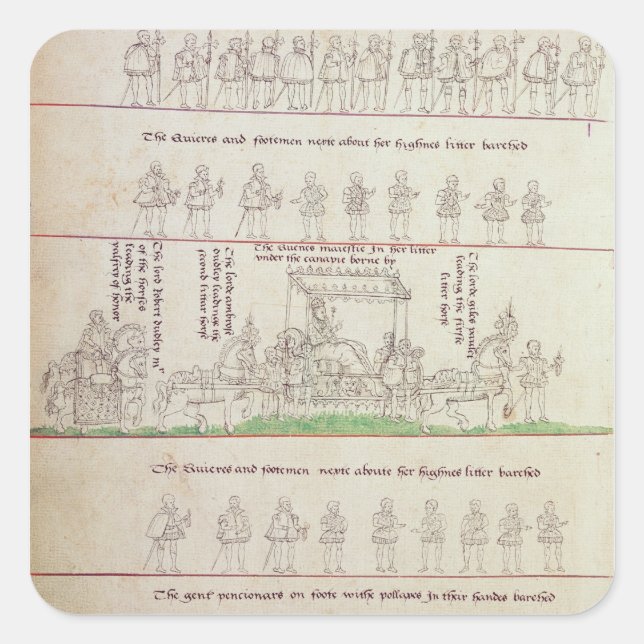 The Quieres and footemen nexte about her highnes litter barehed
The Quenes maiestie In her litter
under the canapie borne by
The lord Robert dudley mr
of the horses
leading the
palfrey of honor
The lorde ambrose
dudley leading the
second litter horse
The lorde giles paulet
leading the firste
litter horse
The Quieres and footemen nexte aboute her highnes litter barehed
The gent pencionars on foote withe pollaxes In their handes barehed